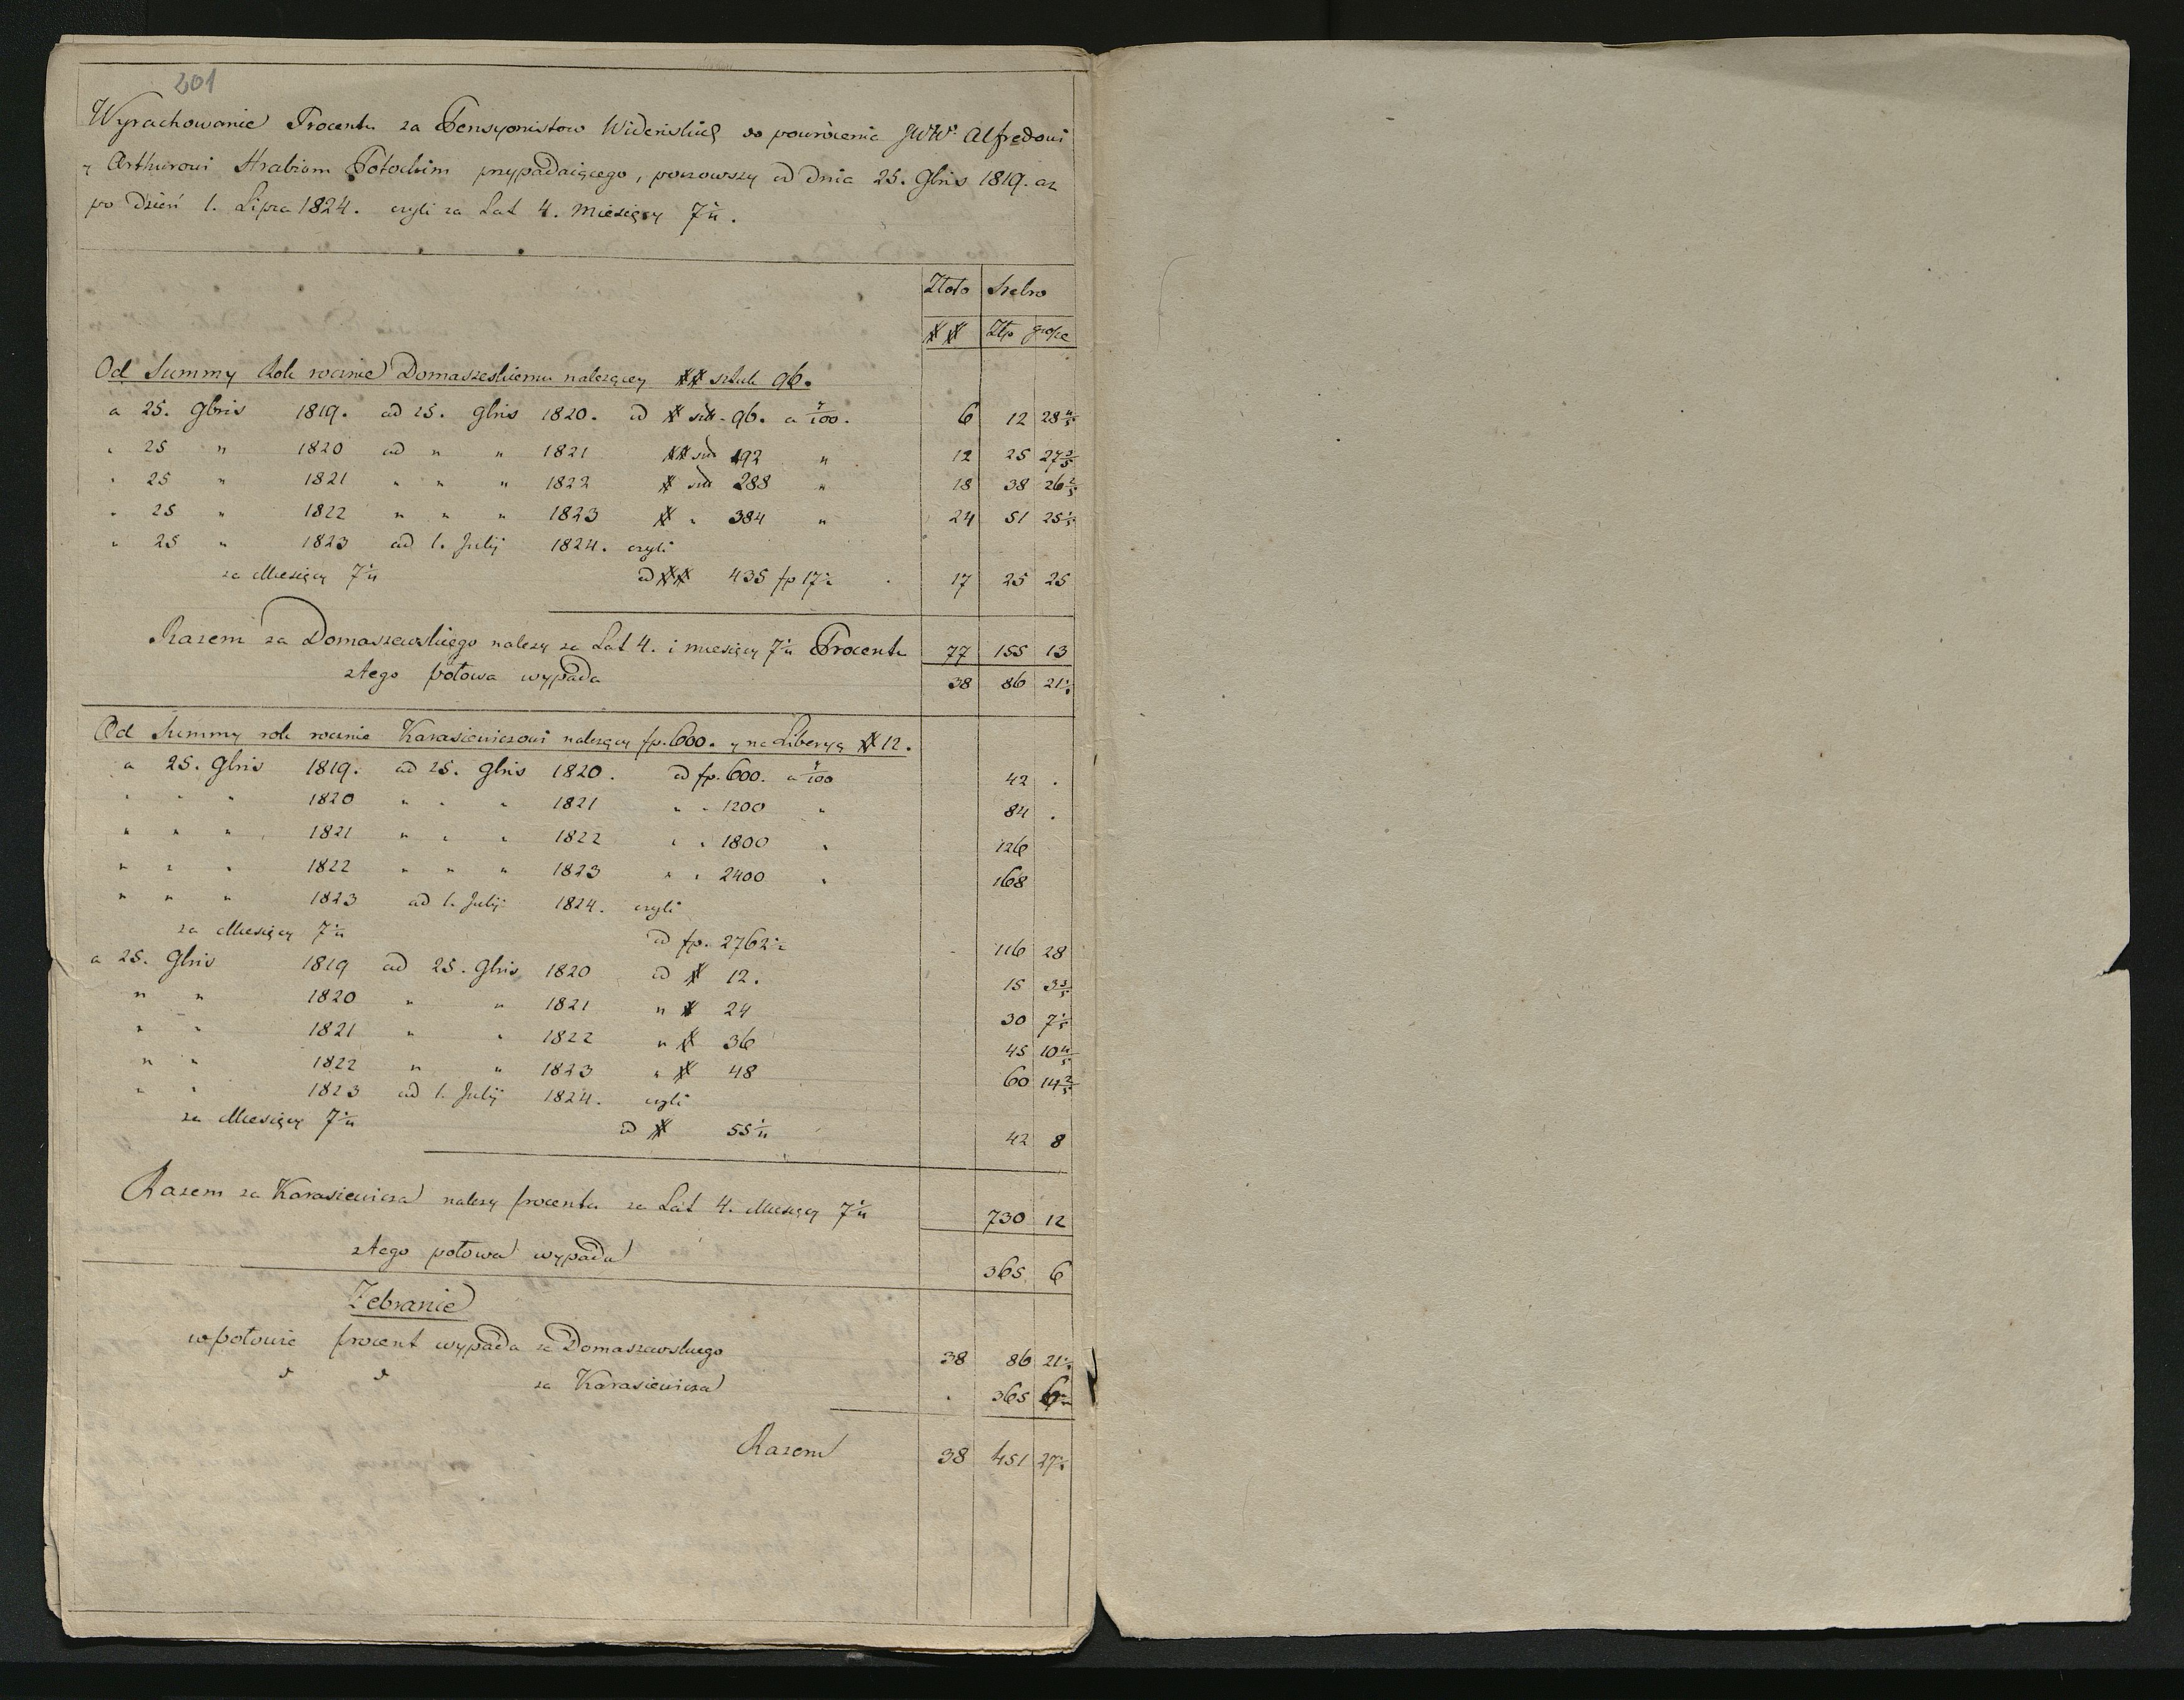 201
Wyrachowanie Procentu za Pensyonistow Wideńskich do powrócenia JWW. Alfredowi
y Arthurowi Hrabiom Potockim przypadaiącego, począwszy od dnia 25. 9bris 1819. az
po dzień 1. Lipca 1824. czyli za Lat 4. Miesięcy 7 1/4.
Złoto Srebro
## Złp grosze
Od Summy Rok rocznie Domaszeskiemu należącey ## sztuk 96.
a 25. 9bris 1819. ad 25. 9bris 1820. od # szt. 96. a 7/100. 6 12 28 4/5
" 25 " 1820 ad " " 1821 ## szt 192 " 12 25 27 3/5
" 25 " 1821 " " " 1822 # szt 288 " 18 38 26 2/5
" 25 " 1822 " " " 1823 # " 384 " 24 51 25 1/5
" 25 " 1823 ad 1. Julij 1824. czyli
za Miesięcy 7 1/4 od ## 435 fp 17 1/2 . 17 25 25
Razem za Domaszewskiego należy za Lat 4. i miesięcy 7 1/4 Procentu 77 155 13
z tego połowa wypada 38 86 21 1/2
Od Summy rok rocznie Karasiewiczowi należącey fp. 600. y na Liberyą # 12.
a 25. 9bris 1819. ad 25. 9bris 1820. od fp. 600. a 7/100 42 .
" " " 1820 " " " 1821 " " 1200 " 84 .
" " " 1821 " " " 1822 " " 1800 " 126
" " " 1822 " " " 1823 " " 2400 " 168
" " " 1823 ad 1. Julij 1824. czyli
za Miesięcy 7 1/4 od fp. 2762 1/2 116 28
a 25. 9bris 1819 ad 25. 9bris 1820 od # 12. 15 3 3/5
" " 1820 " " 1821 " # 24 30 7 1/5
" " 1821 " " 1822 " # 36 45 10 4/5
" " 1822 " " 1823 " # 48 60 14 2/5
" " 1823 ad 1. Julij 1824. czyli
za Miesięcy 7 1/4 od # 55 1/4 42 8
Razem za Karasiewicza należy procentu za Lat 4. Miesięcy 7 1/4 730 12
z tego połowa wypada 365 6
Zebranie
w połowie procent wypada za Domaszewskiego 38 86 21 1/2
za Karasiewicza . 365 6
Razem 38 451 27 1/2